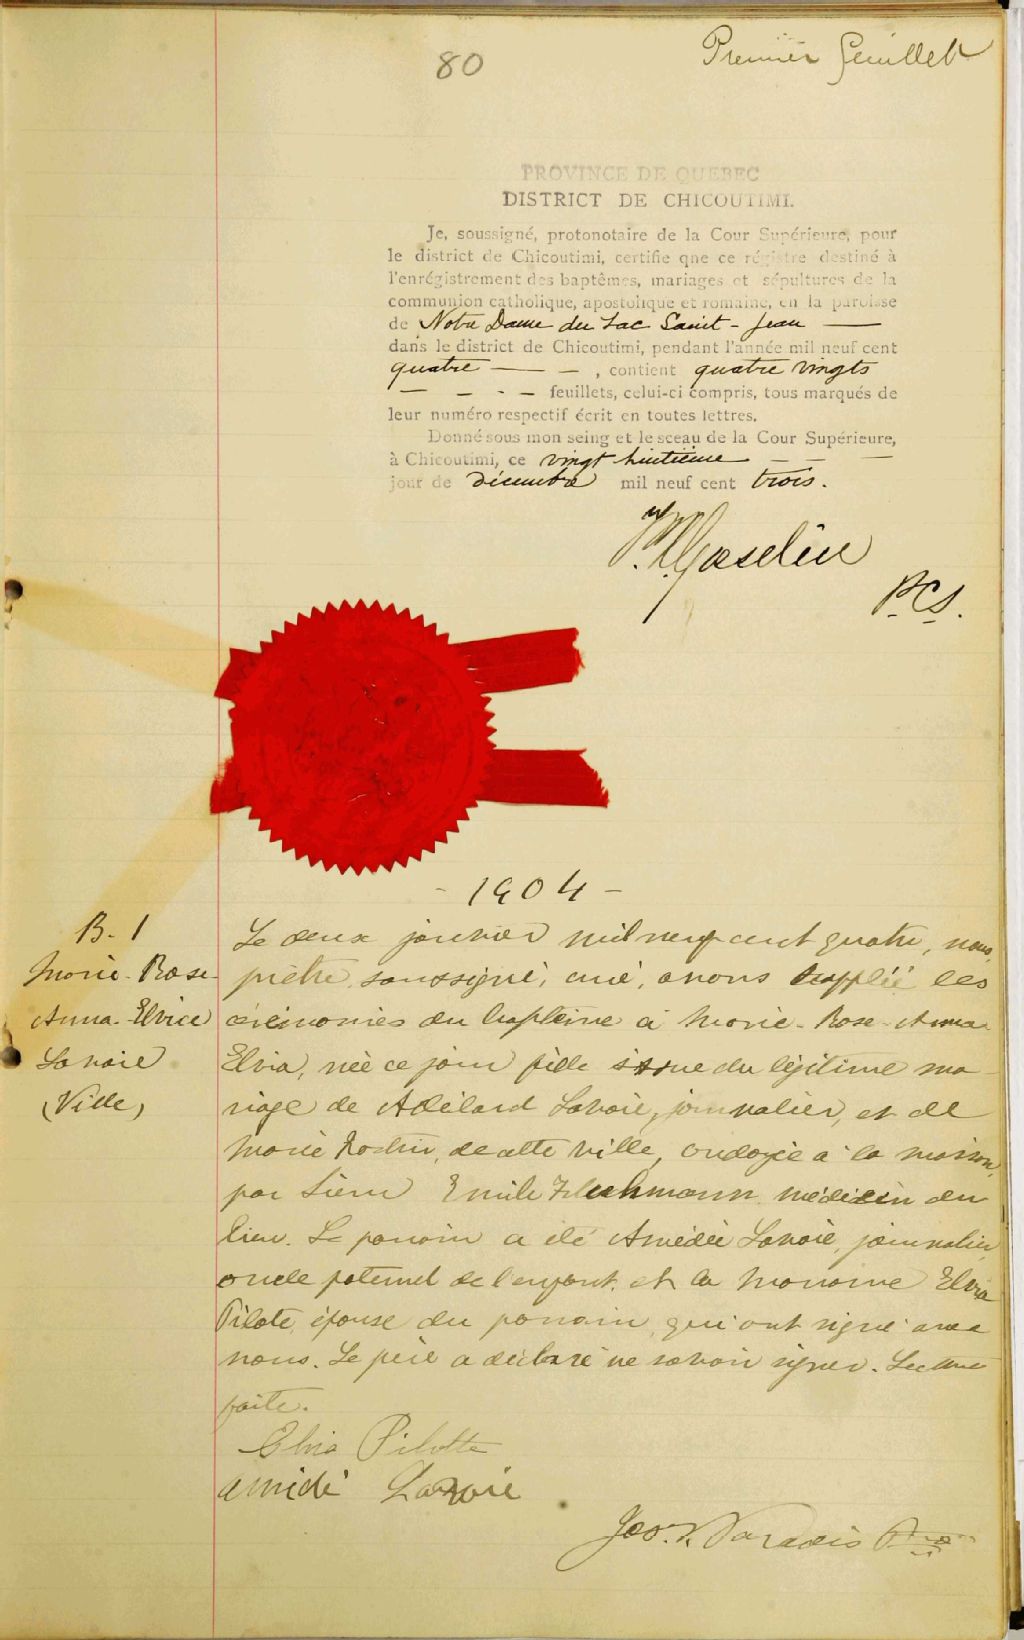 80
Premier feuillet
PROVINCE DE QUEBEC
DISTRICT DE CHICOUTIMI.
Je, soussigné, protonotaire de la Cour Supérieure, pour
le district de Chicoutimi, certifie qne ce régistre destiné à
l'enrégistrement des baptêmes, mariages et sépultures de la
communion catholique, apostolique et romaine, en la paroisse
de Notre Dame du Lac Saint-Jean —
dans le district de Chicoutimi, pendant l'année mil neuf cent
quatre — — , contient quatre vingts
— — - — feuillets, celui-ci compris, tous marqués de
leur numéro respectif écrit en toutes lettres.
Donné sous mon seing et le sceau de la Cour Supérieure,
à Chicoutimi, ce vingt huitième — — —
jour de décembre mil neuf cent trois.
Gosselin
P.C.S.
- 1904 -
B. 1
Marie-Rose-
Anna-Elvice
Lavoie
(Ville)
Le deux janvier mil neuf cent quatre, nous,
prêtre, soussigné, curé, avons supplié les
cérémonies du baptême à Marie-Rose-Anna-
Elvia, née ce jour fille issue du légitime ma-
riage de Adélard Lavoie, journalier, et de
Marie, de cette ville, ondoyée à la maison,
par Sieur Emile médecin du
lieu. Le parrain a été Amédée Lavoie, journalier,
oncle paternel de l'enfant, et la marraine Elvia
Pilote, épouse du parrain, qui ont signé avec
nous. Le père a déclaré ne savoir signer. Lecture
faite.
Elvia Pilotte
Amidé Lavoie
Jos. Paradis Ptre